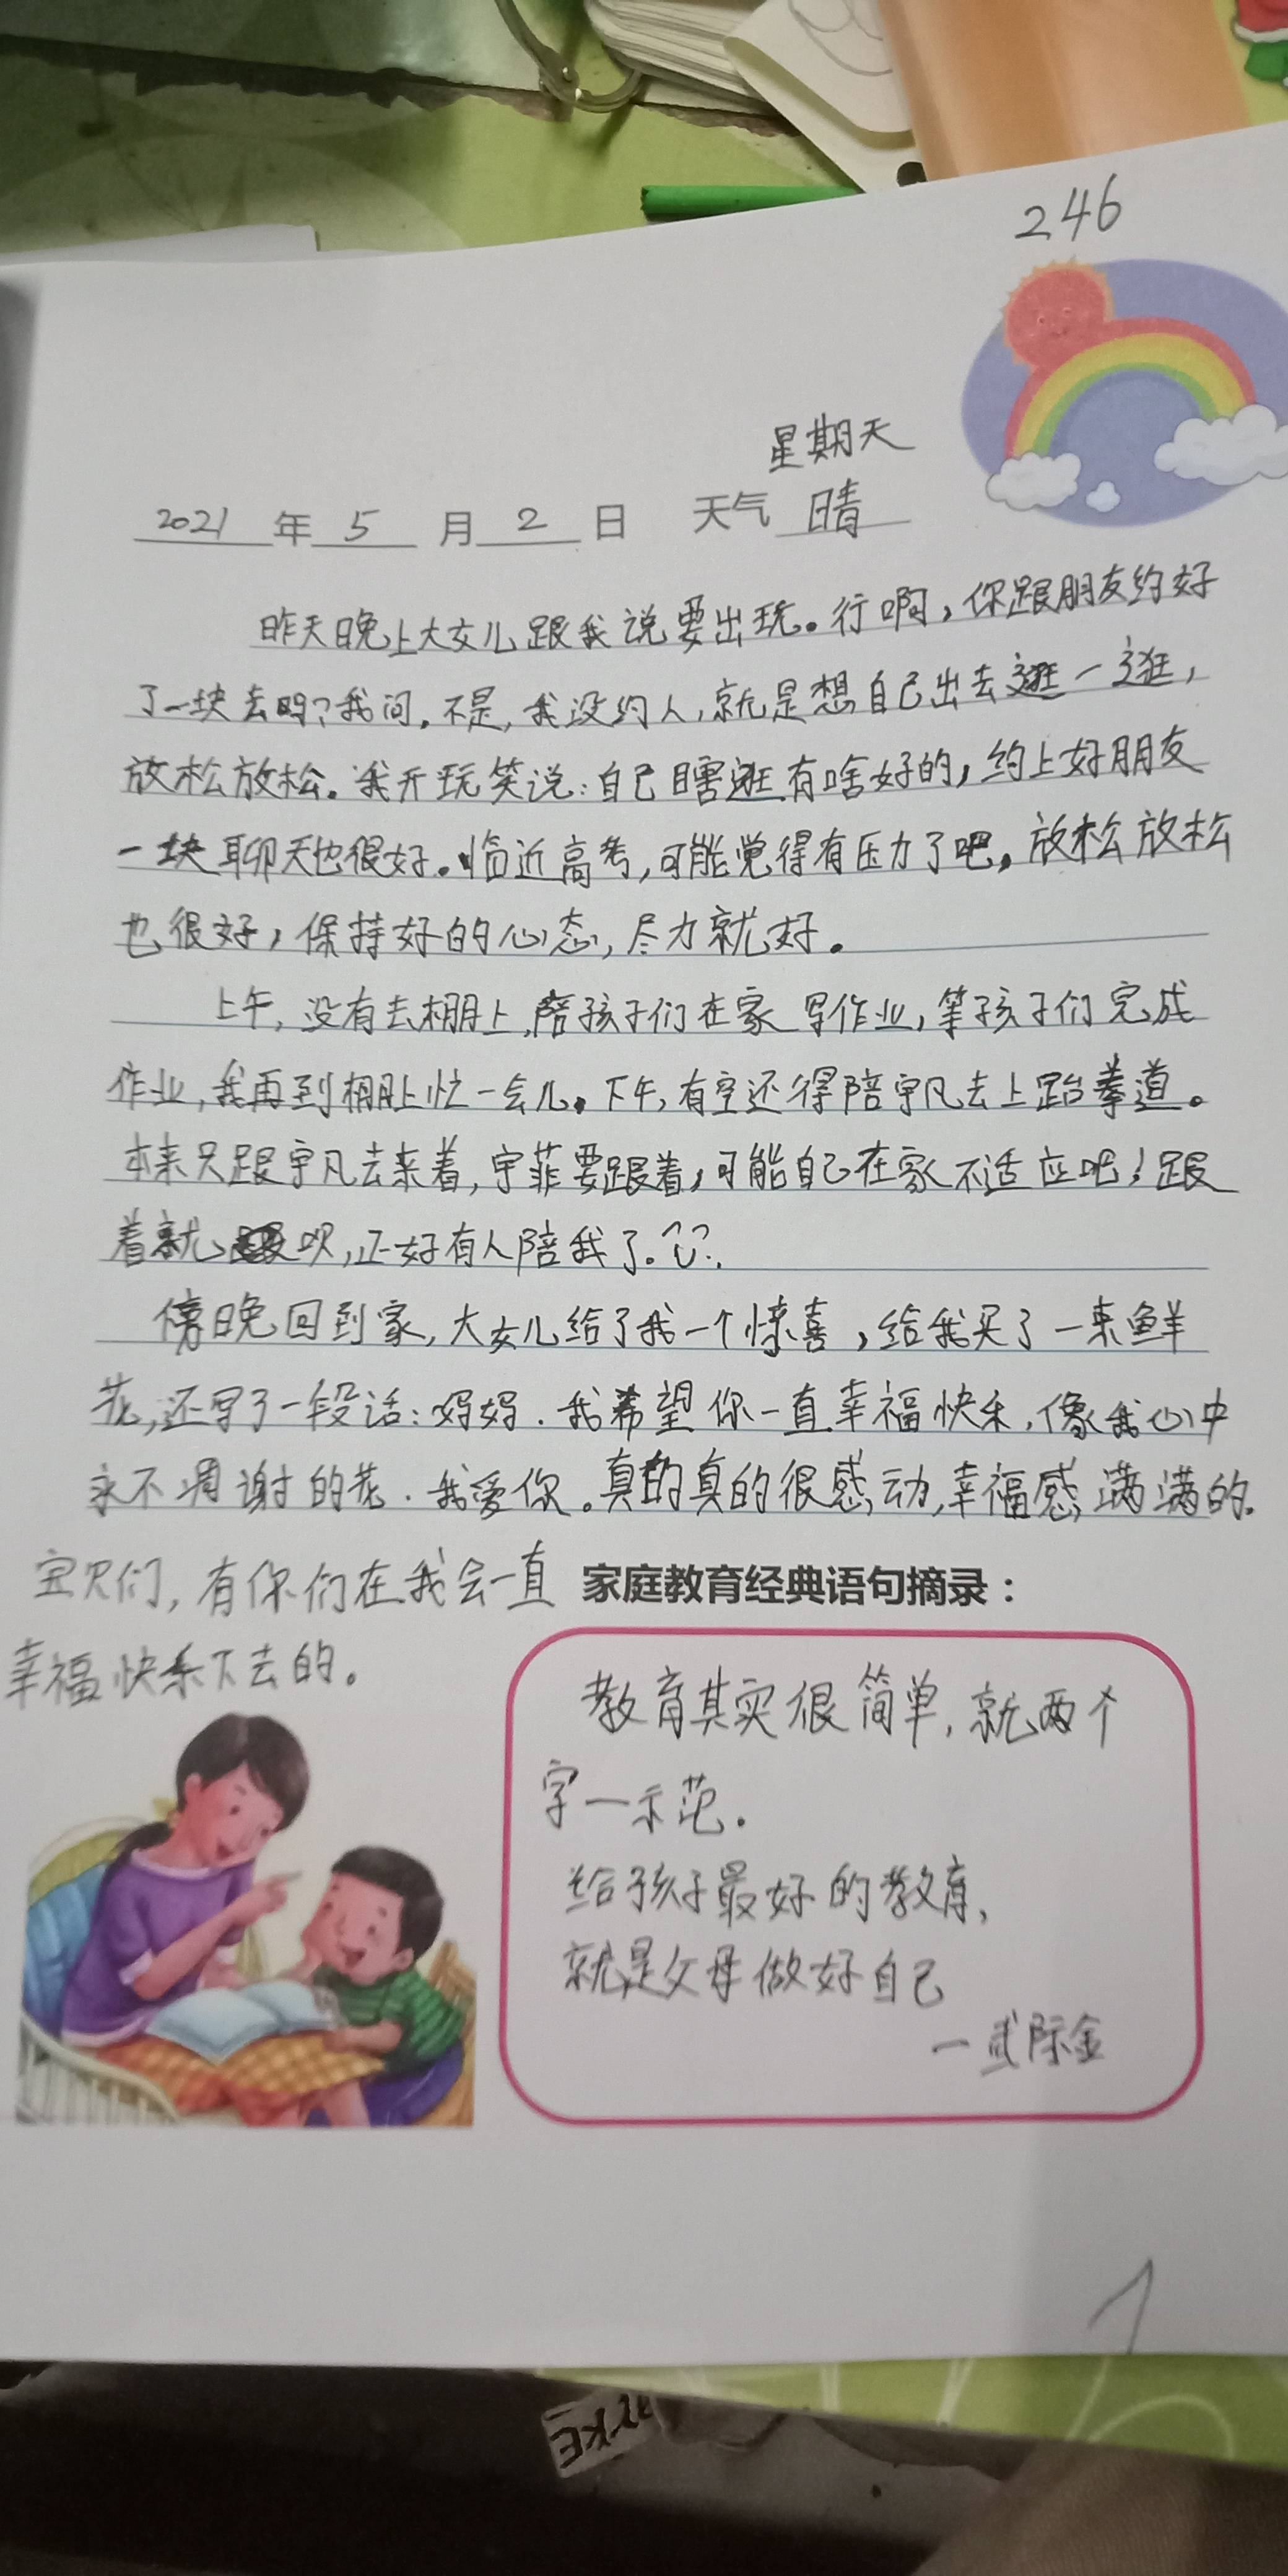 246
星期天
2021年5月2日 天气 晴
昨天晚上大女儿跟我说要出玩。行啊，你跟朋友约好
了一块去吗？我问。不是，我没约人，就是想自己出去逛一逛，
放松放松。我开玩笑说：自己瞎逛有啥好的，约上好朋友
一块聊天也很好。临近高考，可能觉得有压力了吧。放松放松
也很好，保持好的心态，尽力就好。
上午，没有去棚上，陪孩子们在家写作业，等孩子们完成
作业，我再到棚上忙一会儿。下午，有空还得陪宇凡去上跆拳道。
本来只跟宇凡去来着，宇菲要跟着，可能自己在家不适应吧！跟
着就呗，正好有人陪我了。
傍晚回到家，大女儿给了我一个惊喜，给我买了一束鲜
花，还写了一段话：妈妈．我希望你一直幸福快乐，像我心中
永不凋谢的花．我爱你。真的真的很感动，幸福感满满的。
宝贝们，有你们在我会一直
幸福快乐下去的。
家庭教育经典语句摘录：
教育其实很简单，就两个
字一示范．
给孩子最好的教育，
就是父母做好自己
一武际金
1